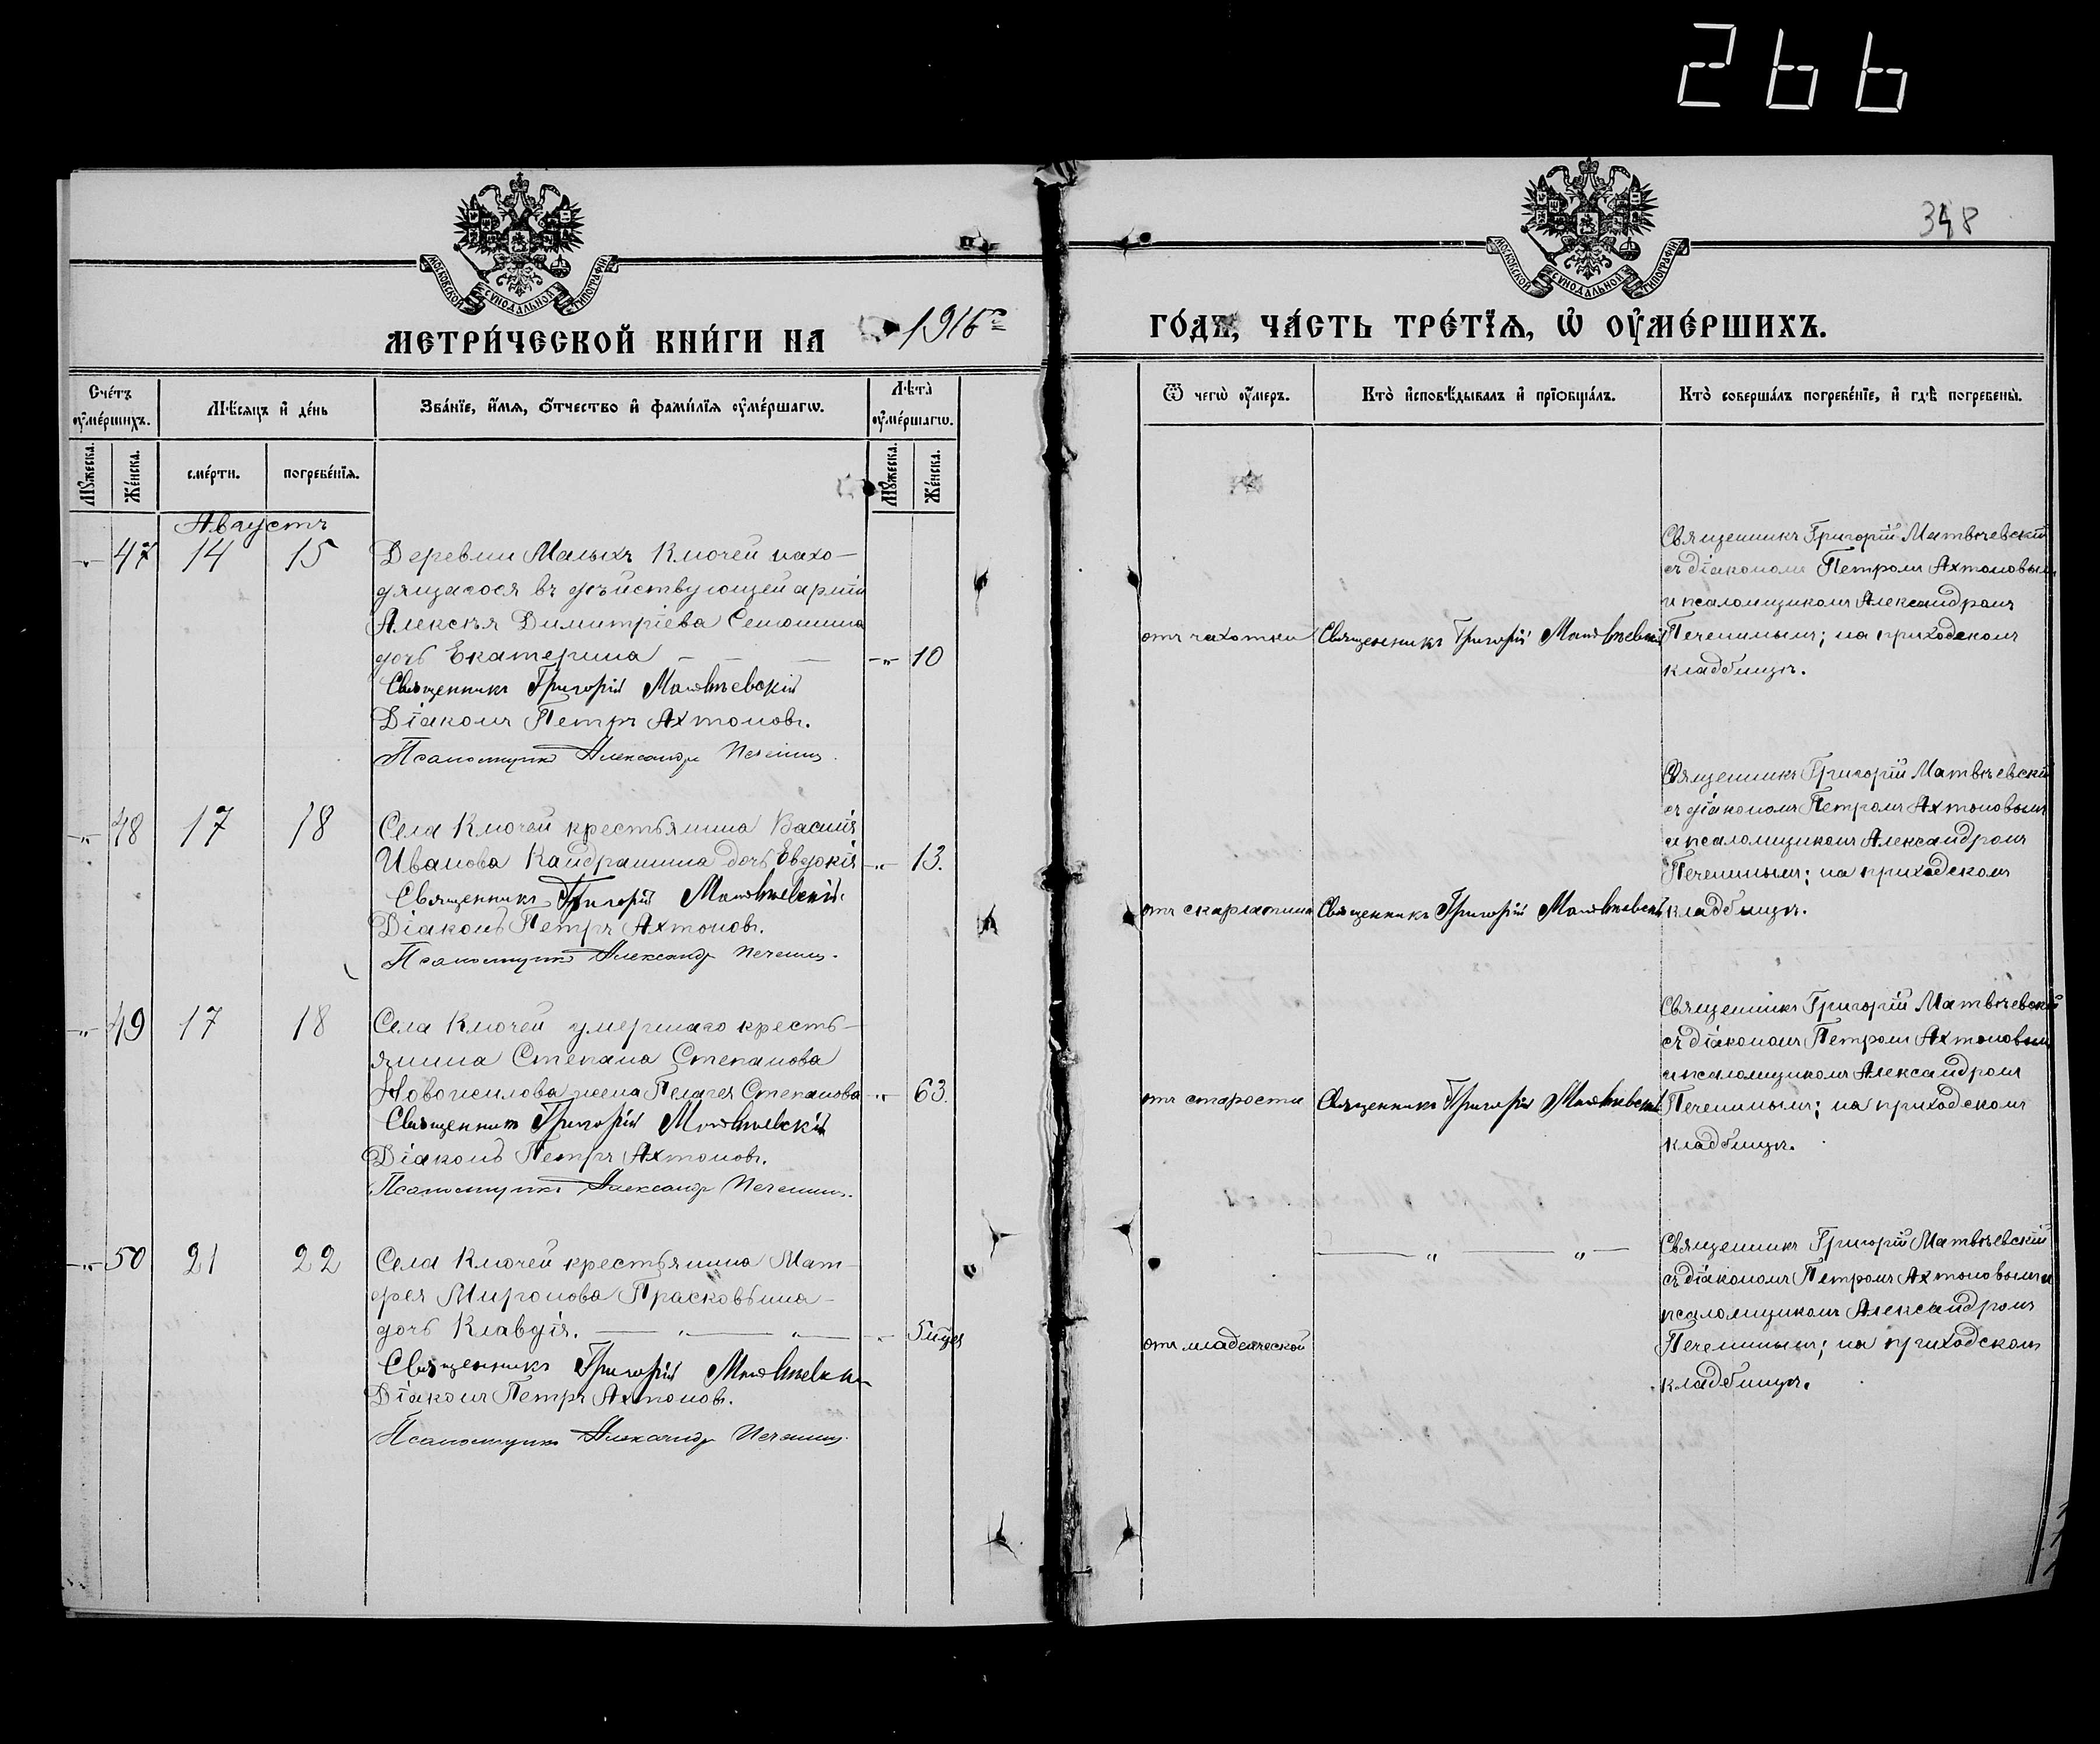 266
348
МОСКОВСКОЙ СѴНОДАЛЬНОЙ ТИПОГРАФІИ
МОСКОВСКОЙ СѴНОДАЛЬНОЙ ТИПОГРАФІИ
МЕТРИ́ЧЕСКОЙ КНИ́ГИ НА 1916 г. ГО́ДЪ, ЧА́СТЬ ТРЕ́ТІЯ, Ѡ҆ ОУ҆МЕ́РШИХЪ.
Сче́тъ оу҆ме́ршихъ.
Мѣ́сяцъ и҆ де́нь
Зва́нїе, и҆́мѧ, ѻ҆́тчество и҆ фами́лїѧ оу҆ме́ршагѡ.
Лѣ̀та̀ оу҆ме́ршагѡ.
Ѿ чегѡ̀ оу҆́меръ.
Кто̀ и҆сповѣ́дывалъ и҆ прїѡбща́лъ.
Кто̀ соверша́лъ погребе́нїе, и҆ гдѣ̀ погребены̀.
Мꙋ́жеска.
Же́нска.
сме́рти.
погребе́нїѧ.
Мꙋ́жеска.
Же́нска.
Августъ
-"- 47 14 15
Деревни Малыхъ Ключей нахо-
дящагося въ дѣйствующей арміи
Алексѣя Димитріева Сетонина
дочь Екатерина -"- 10
Священникъ Григорій Матвѣевскій
Діаконъ Петръ Ахтоновъ.
Псаломщикъ Александръ Печенинъ.
отъ чахотки
Священникъ Григорій Матвѣевскій
Священникъ Григорій Матвѣевскій
съ діакономъ Петромъ Ахтоновымъ
и псаломщикомъ Александромъ
Печенинымъ; на приходскомъ
кладбищѣ.
-"- 48 17 18
Села Ключей крестьянина Василія
Иванова Кандрашина дочь Евдокія -"- 13.
Священникъ Григорій Матвѣевскій.
Діаконъ Петръ Ахтоновъ.
Псаломщикъ Александръ Печенинъ.
отъ скарлатины
Священникъ Григорій Матвѣевскій
Священникъ Григорій Матвѣевскій
съ діакономъ Петромъ Ахтоновымъ
и псаломщикомъ Александромъ
Печенинымъ; на приходскомъ
кладбищѣ.
-"- 49 17 18
Села Ключей умершаго кресть-
янина Степана Степанова
Новожилова жена Пелагея Степанова -"- 63.
Священникъ Григорій Матвѣевскій
Діаконъ Петръ Ахтоновъ.
Псаломщикъ Александръ Печенинъ.
отъ старости
Священникъ Григорій Матвѣевскій
Священникъ Григорій Матвѣевскій
съ діакономъ Петромъ Ахтоновымъ
и псаломщикомъ Александромъ
Печенинымъ; на приходскомъ
кладбищѣ.
-"- 50 21 22
Села Ключей крестьянина Мат-
фея Миронова Прасковьина
дочь Клавдія. — " — " — -"-
Священникъ Григорій Матвѣевскій
Діаконъ Петръ Ахтоновъ.
Псаломщикъ Александръ Печенинъ.
отъ младенческой
— " — " —
Священникъ Григорій Матвѣевскій
съ діакономъ Петромъ Ахтоновымъ и
псаломщикомъ Александромъ
Печенинымъ; на приходскомъ
кладбищѣ.